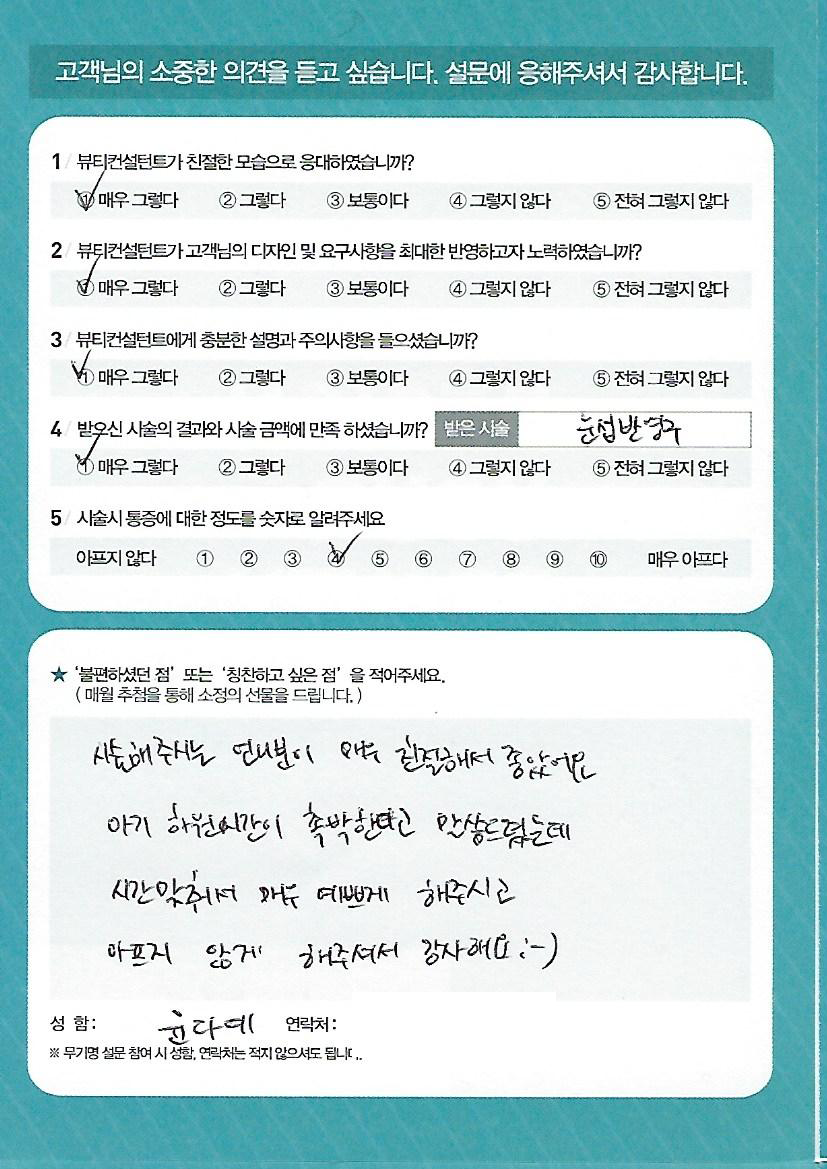 고객님의 소중한 의견을 듣고 싶습니다. 설문에 응해주셔서 감사합니다.
1 / 뷰티컨설턴트가 친절한 모습으로 응대하였습니까?
① 매우 그렇다 ② 그렇다 ③ 보통이다 ④ 그렇지 않다 ⑤ 전혀 그렇지 않다
2 / 뷰티컨설턴트가 고객님의 디자인 및 요구사항을 최대한 반영하고자 노력하였습니까?
① 매우 그렇다 ② 그렇다 ③ 보통이다 ④ 그렇지 않다 ⑤ 전혀 그렇지 않다
3 / 뷰티컨설턴트에게 충분한 설명과 주의사항을 들으셨습니까?
① 매우 그렇다 ② 그렇다 ③ 보통이다 ④ 그렇지 않다 ⑤ 전혀 그렇지 않다
4 / 받으신 시술의 결과와 시술 금액에 만족 하셨습니까? 받은 시술 눈썹반영구
① 매우 그렇다 ② 그렇다 ③ 보통이다 ④ 그렇지 않다 ⑤ 전혀 그렇지 않다
5 / 시술시 통증에 대한 정도를 숫자로 알려주세요
아프지 않다 ① ② ③ ④ ⑤ ⑥ ⑦ ⑧ ⑨ ⑩ 매우 아프다
★ '불편하셨던 점' 또는 '칭찬하고 싶은 점' 을 적어주세요.
( 매월 추첨을 통해 소정의 선물을 드립니다. )
시술해주시는 언니분이 매우 친절해서 좋았어요
아기 하원시간이 촉박한다고 말씀드렸는데
시간맞춰서 매우 예쁘게 해주시고
아프지 않게 해주셔서 감사해요 :-)
성 함 : 윤다예 연락처 :
※ 무기명 설문 참여 시 성함, 연락처는 적지 않으셔도 됩니다.